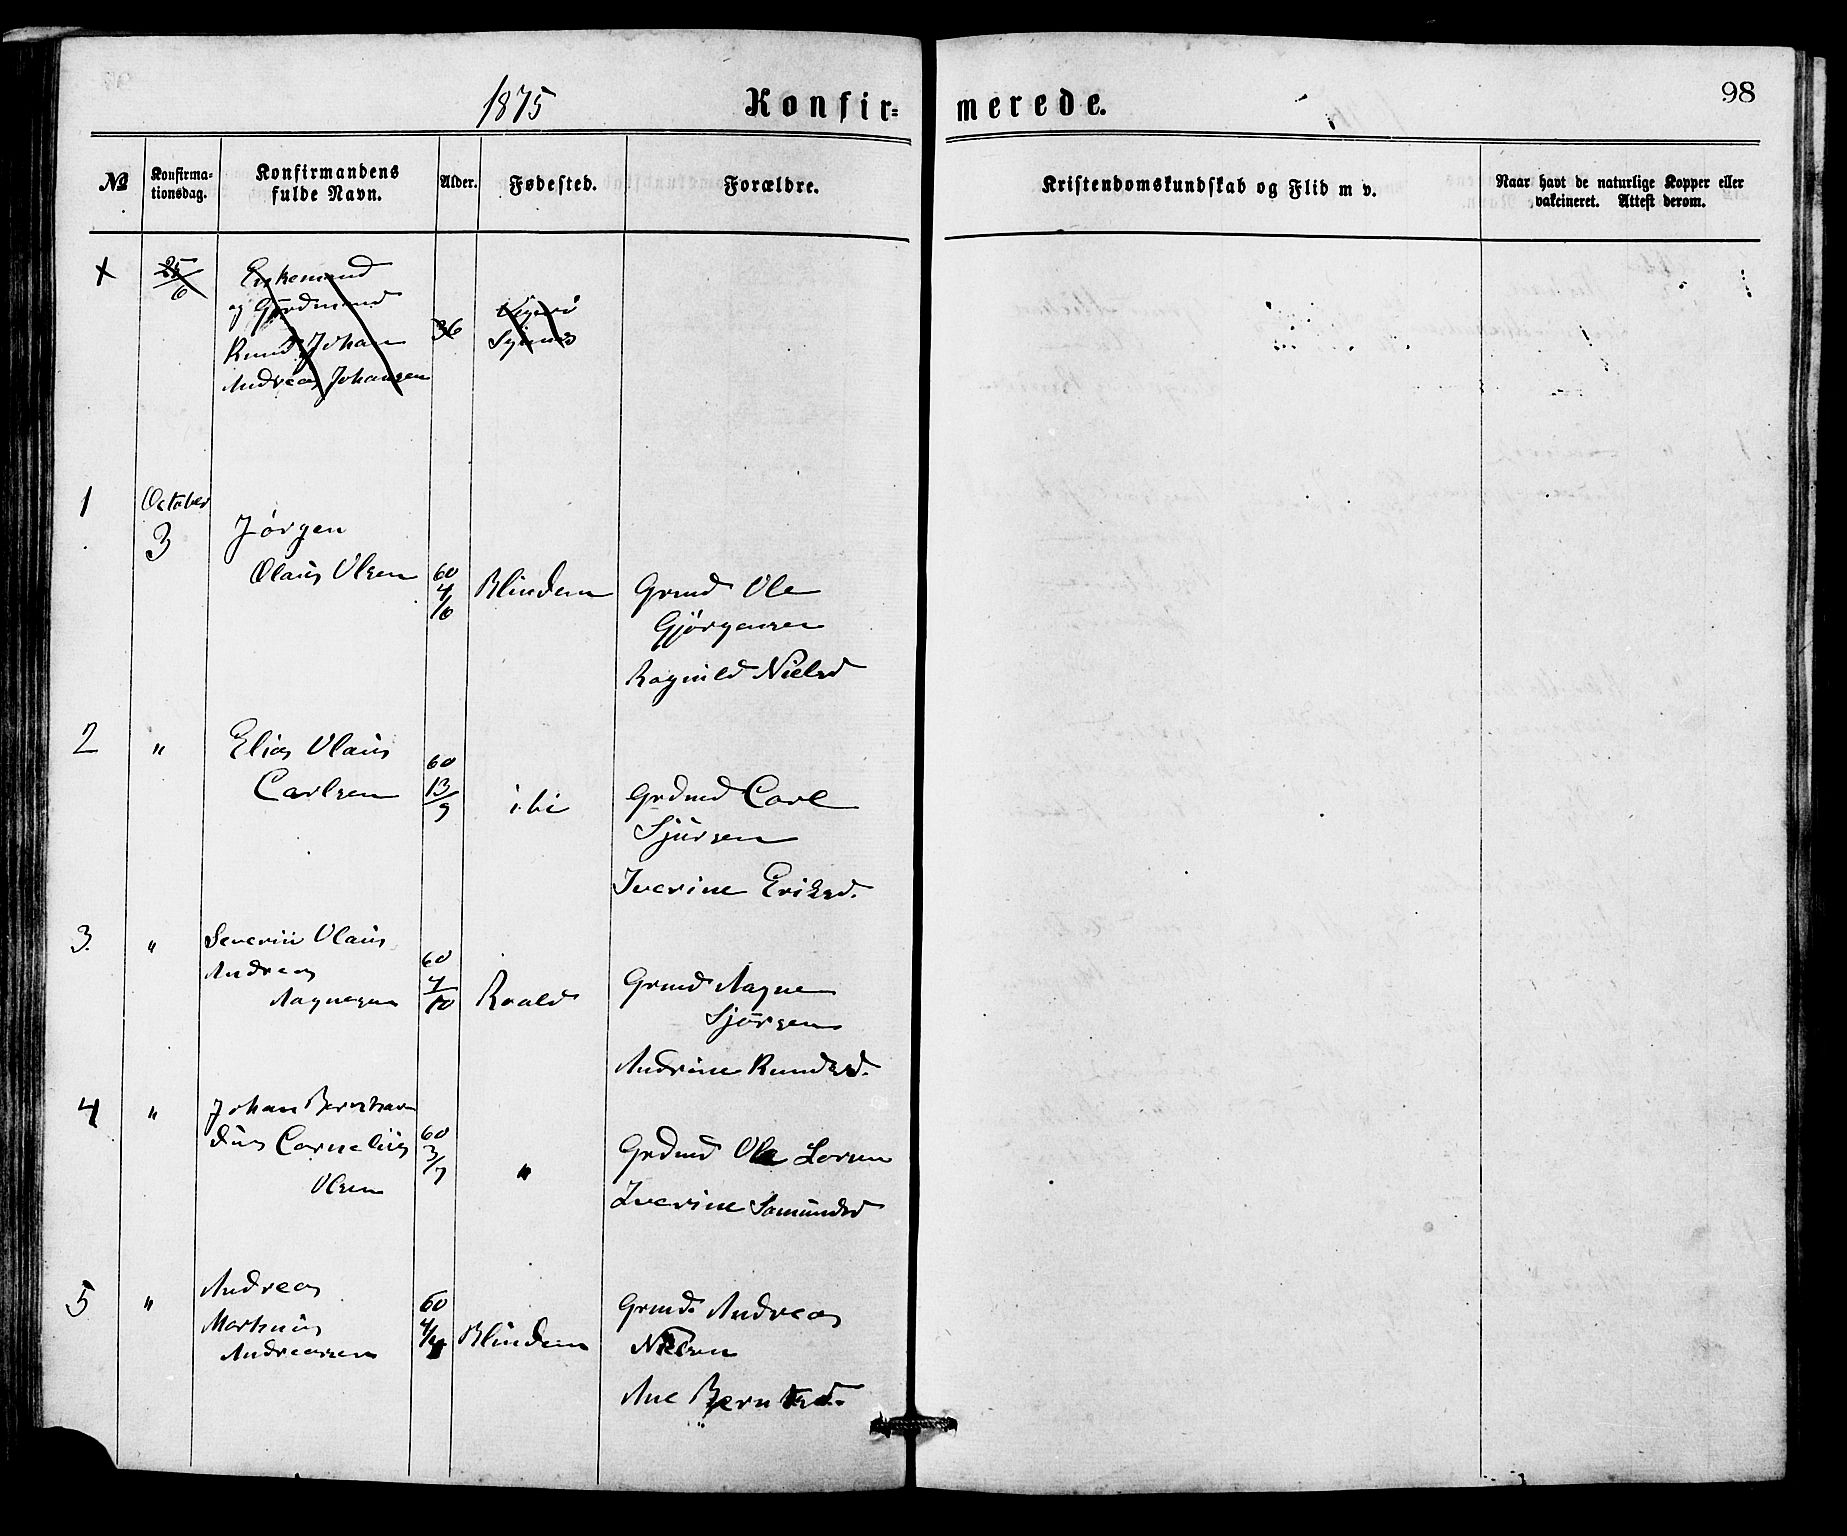 1875 Konfir= merede. 98
№ Konfirma-
tionsdag. Konfirmandens
fulde Navn. Alder. Fødested. Forældre. Kristendomskundskab og Flid m v. Naar havt de naturlige Kopper eller
vakcineret. Attest derom.
x 25/6 Enkemand
og Gordmand
Knud Johan 36
Andreas Johansen
1 October
3 Jørgen
Olaus Olsen 60 4/10 Blindem Grmd Ole
Gjørgensen
Ragnild Nielsd
2 " Elias Olaus
Carlsen 60 13/9 ibi Grdmd Carl
Sjursen
Iverine Eriksd.
3. " Severin Olaus
Andreas
Aagnesen 60 4/10 Roald Grmd Aagne
Sjørsen
Andrine Knudsd.
4 " Johan Bernhar
dus Cornelius
Olsen 60 3/7 " Grdmd Ole Larsen
Iverine Samundsd
5 " Andreas
Martinus
Andreassen 60 Blindem Grmd. Andreas
Nielsen
Ane Berntsd.